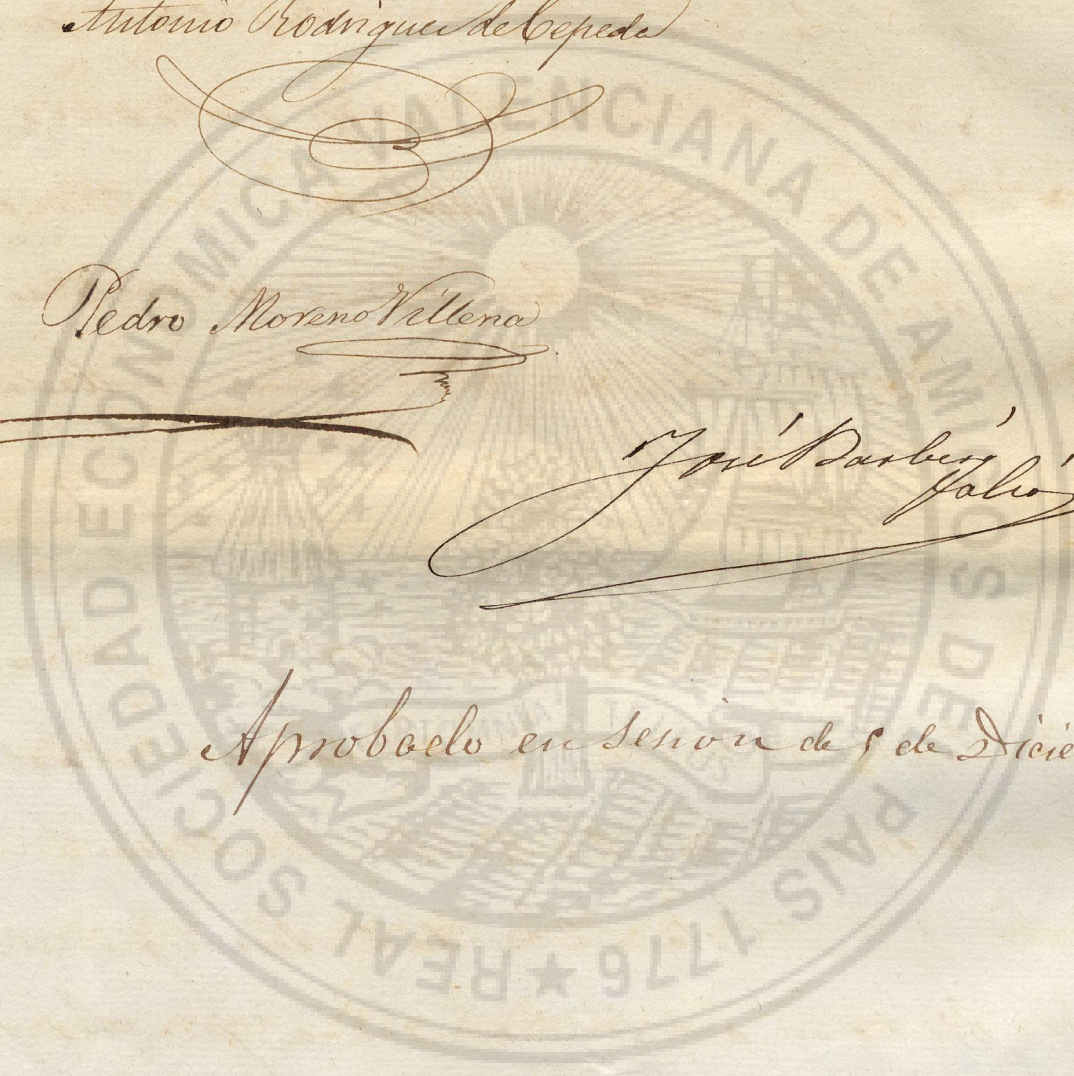 Antonio Rodriguez de Cepeda
Pedro Moreno Villena
José Barberá
Falcó
Aprobado en sesión de 5 de Dicie
REAL SOCIEDAD ECONOMICA VALENCIANA DE AMIGOS DEL PAIS 1776